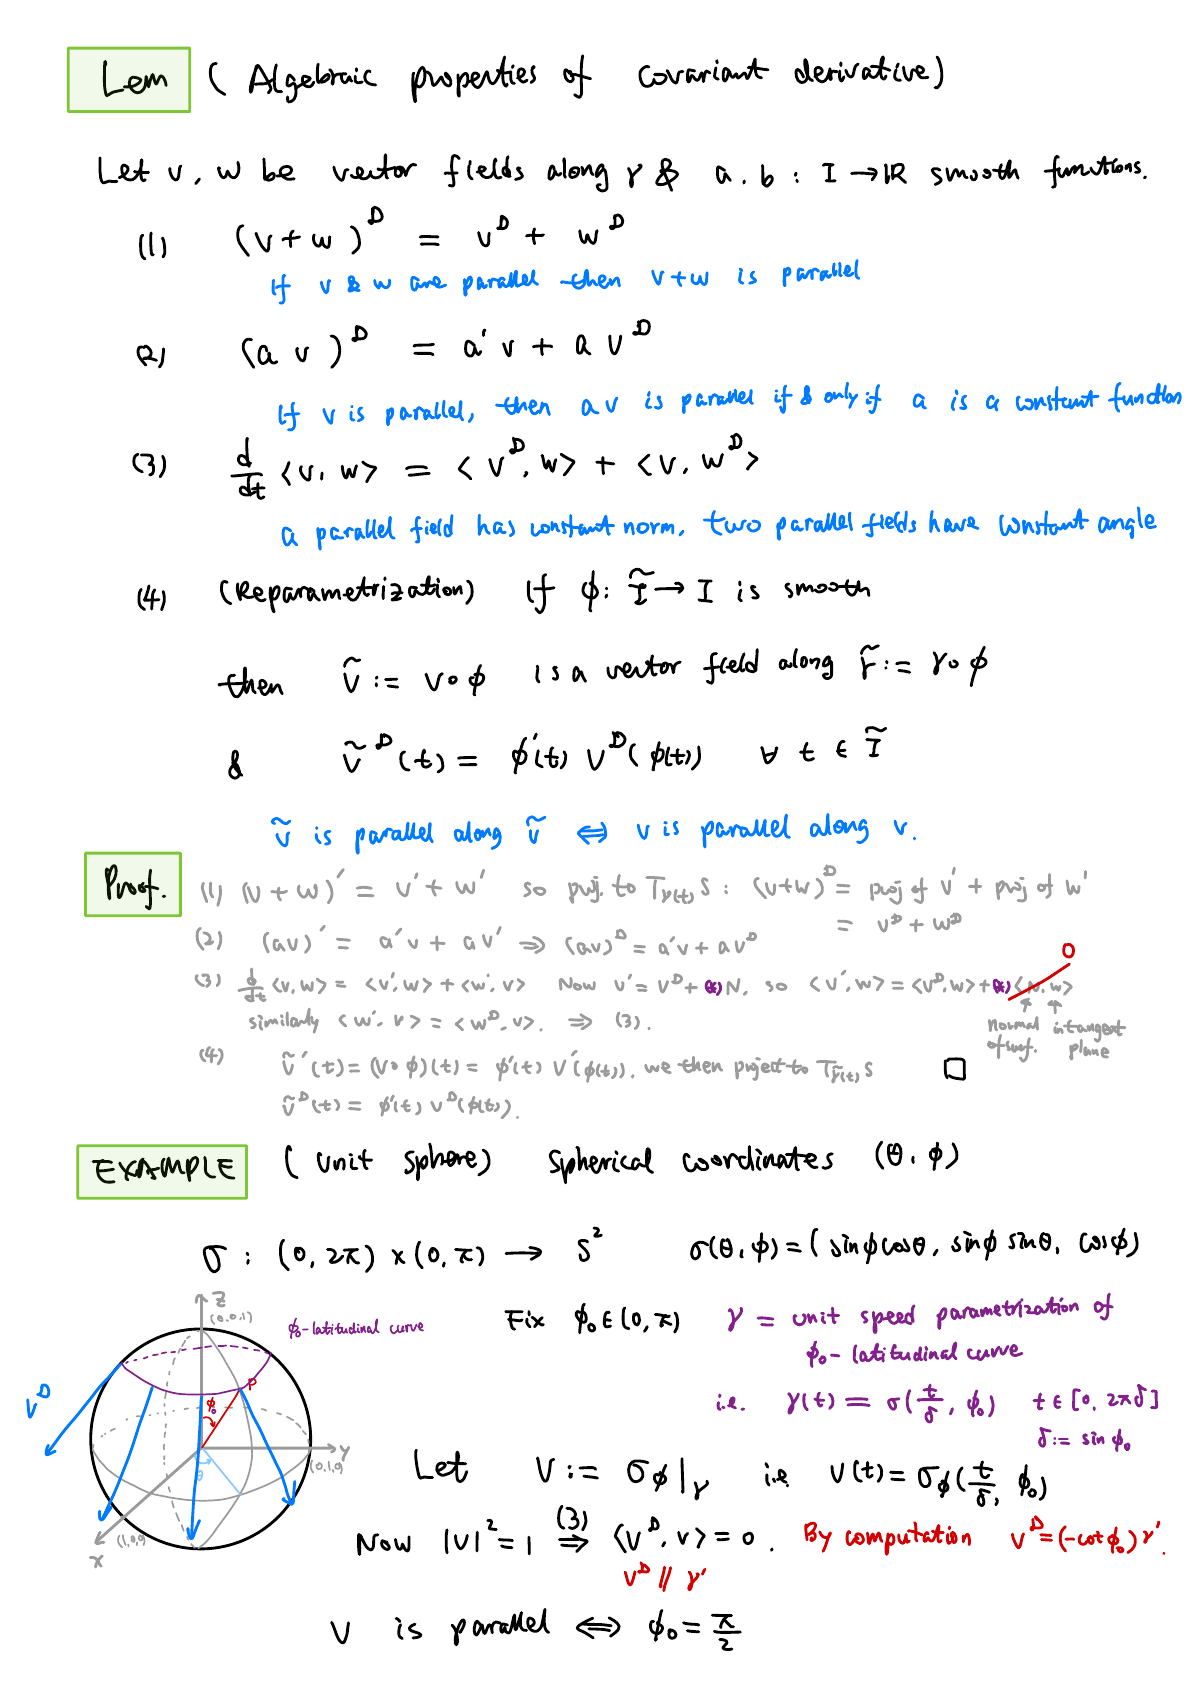 Lem ( Algebraic properties of covariant derivative)
Let v, w be vector fields along γ & a, b : I → ℝ smooth functions.
(1) (v + w)^D = v^D + w^D
If v & w are parallel then v + w is parallel
(2) (a v)^D = a' v + a v^D
If v is parallel, then a v is parallel if & only if a is a constant function
(3) d/dt <v, w> = <v^D, w> + <v, w^D>
a parallel field has constant norm, two parallel fields have constant angle
(4) (Reparametrization) If ϕ: Ĩ → I is smooth
then ṽ := v∘ϕ is a vector field along γ̃ := γ∘ϕ
& ṽ^D(t) = ϕ'(t) v^D(ϕ(t)) ∀ t ∈ Ĩ
ṽ is parallel along ṽ ⇔ v is parallel along v.
Proof. (1) (v + w)' = v' + w' so proj. to T_γ(t) S : (v+w)^D = proj of v' + proj of w'
= v^D + w^D
(2) (av)' = a'v + av' ⇒ (av)^D = a'v + av^D
(3) d/dt <v, w> = <v', w> + <w', v> Now v' = v^D + (*)N, so <v', w> = <v^D, w> + (*) <N, w> 0
similarly <w', v> = <w^D, v>. ⇒ (3).
normal of surf.
in tangent plane
(4) ṽ'(t) = (v∘ϕ)(t) = ϕ'(t) v'(ϕ(t)). we then project to T_γ̃(t) S □
ṽ^D(t) = ϕ'(t) v^D(ϕ(t)).
EXAMPLE ( unit sphere) spherical coordinates (θ, ϕ)
σ : (0, 2π) × (0, π) → S² σ(θ, ϕ) = ( sinϕ cosθ, sinϕ sinθ, cosϕ)
z
(0,0,1)
ϕ₀-latitudinal curve
Fix ϕ₀ ∈ (0, π) γ = unit speed parametrization of
ϕ₀ - latitudinal curve
v^D
P
ϕ₀
θ
y
(0,1,0)
x
(1,0,0)
i.e. γ(t) = σ(t/δ, ϕ₀) t ∈ [0, 2πδ]
δ := sin ϕ₀
Let v := σ_ϕ|_γ i.e. v(t) = σ_ϕ(t/δ, ϕ₀)
Now |v|² = 1 ⇒(3) <v^D, v> = 0. By computation v^D = (-cotϕ₀) γ'.
v^D // γ'
v is parallel ⇔ ϕ₀ = π/2